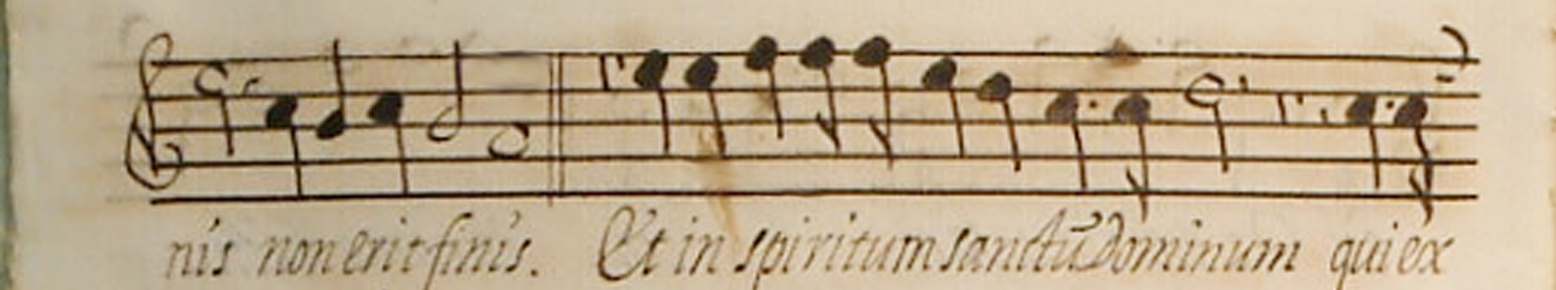 nis non erit finis. Et in spiritum sanctũ dominum qui ex